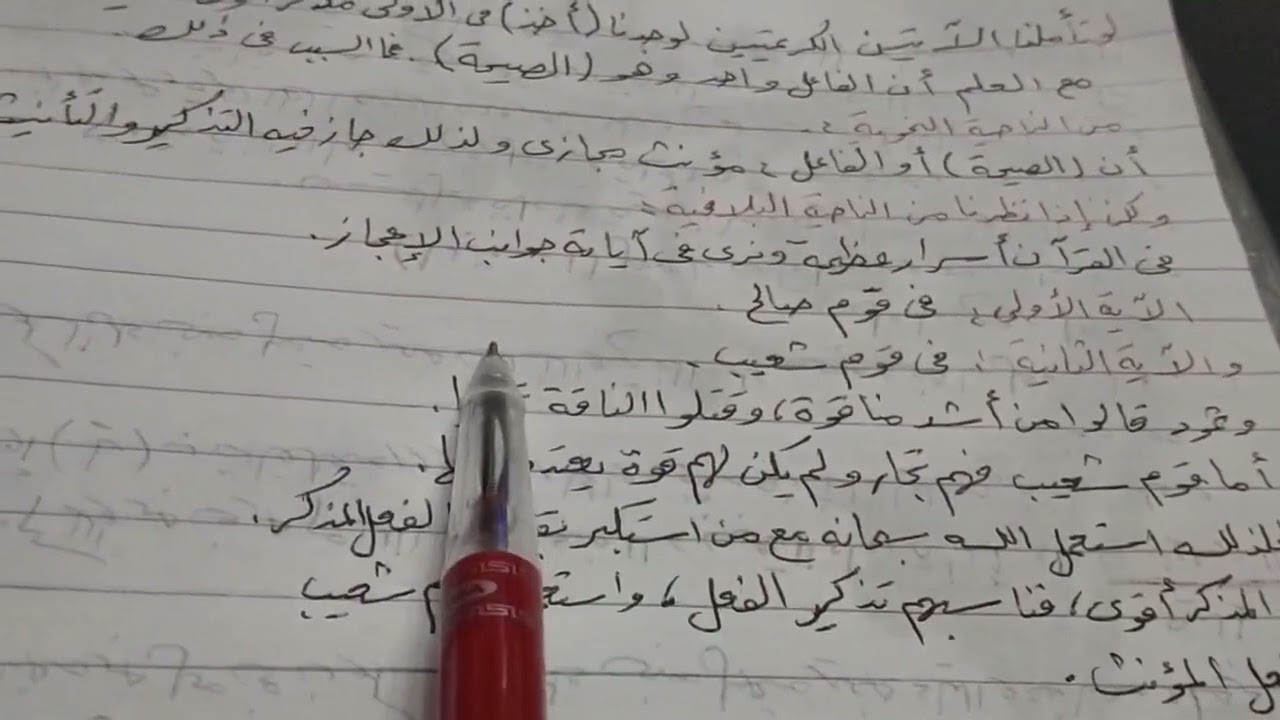 لو تأملنا الآيتين الكريمتين لوجدنا (أخذ) فى الأولى
مع العلم أن الفاعل واحد وهو (الصيحة). فما السبب فى ذلك
من الناحية النحوية :
أن (الصيحة) أو الفاعل : مؤنث مجازى ولذلك جاز فيه التذكير والتأنيث
ولكن إذا نظرنا من الناحية البلاغية :
فى القرآن أسرار عظيمة ونرى فى آياته جوانب الإعجاز.
الآية الأولى : فى قوم صالح .
والآية الثانية : فى قوم شعيب .
وثمود قالوا من أشد منا قوة، وقتلوا الناقة
أما قوم شعيب فهم تجار ولم يكن لهم قوة
فلذلك استعمل الله سبحانه مع من استكبر الفعل المذكر.
المذكر أقوى، فناسبهم تذكير الفعل، شعيب
المؤنث .